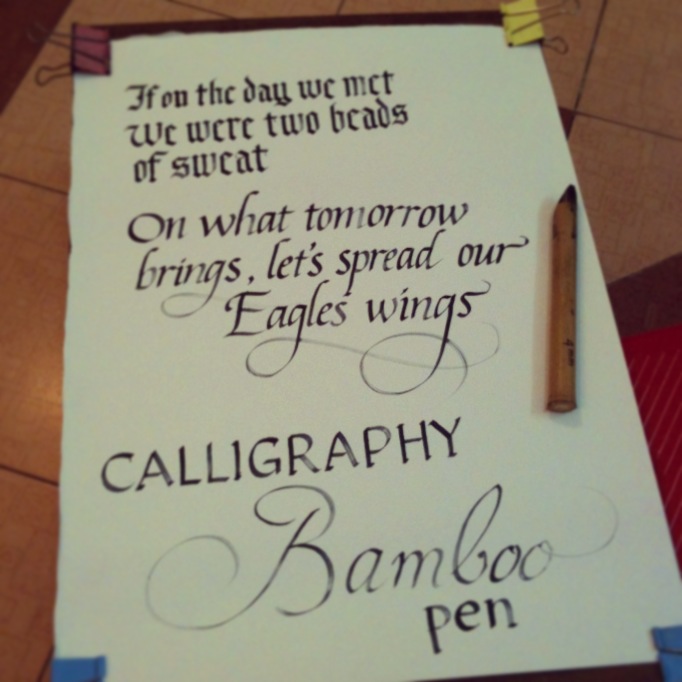 If on the day we met
We were two beads
of sweat
On what tomorrow
brings, let's spread our
Eagles wings
CALLIGRAPHY
Bamboo
pen